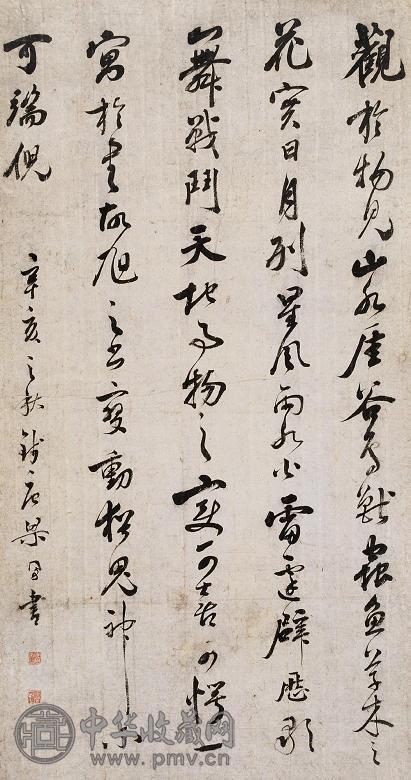 觀於物見山水崖谷鳥獸蟲魚草木之
花實日月列星風雨水火雷霆辟歷歌
舞戰鬥天地事物之變可喜可愕一
寓於書故旭之書變動猶鬼神不
可端倪
辛亥之秋錢唐梁同書
中华收藏网
www.pmv.cn